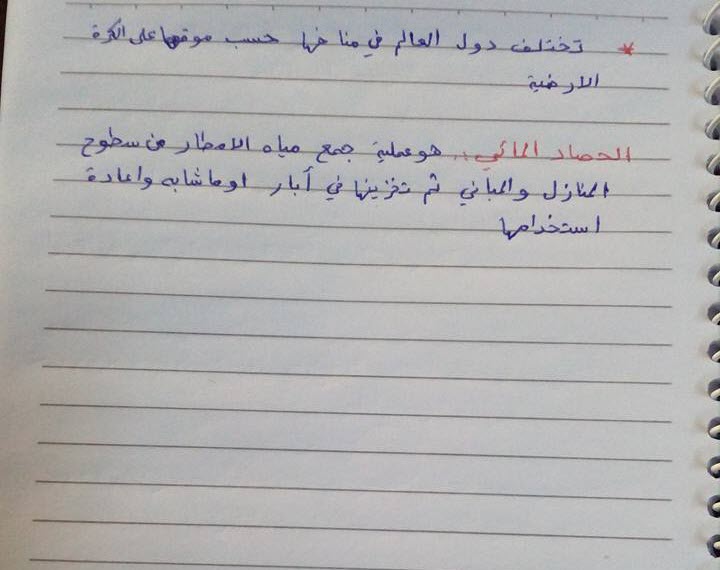 * تختلف دول العالم في مناخها حسب موقعها على الكرة
الارضية
الحصاد المائي : هو عملية جمع مياه الامطار من سطوح
المنازل والمباني ثم تخزينها في آبار او ما شابه واعادة
استخدامها